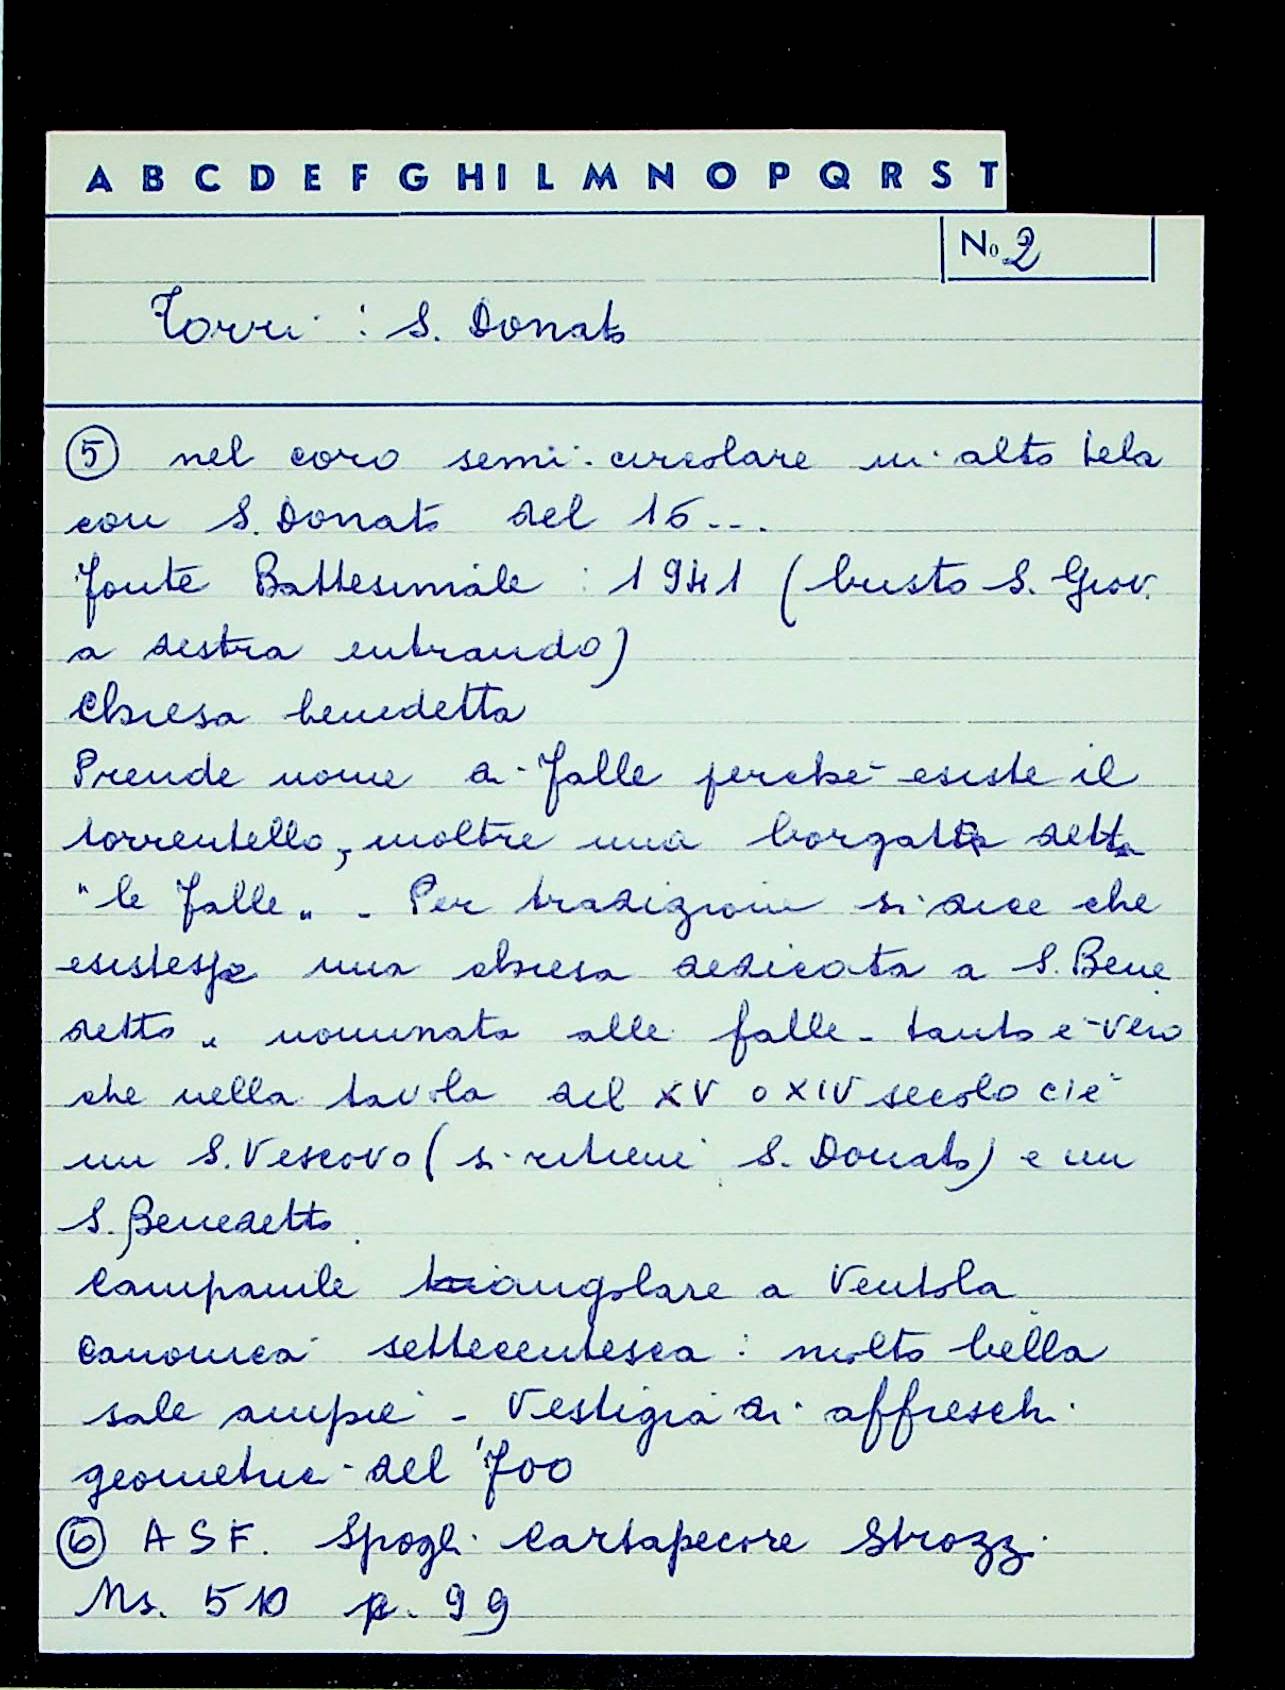 A B C D E F G H I L M N O P Q R S T
No 2
Torri : S. Donato
⑤ nel coro semi-circolare in alto tela
con S. Donato del 16...
Fonte Battesimale : 1941 (busto S. Giov.
a destra entrando)
Chiesa benedetta
Prende nome di Falle perché esiste il
torrentello, inoltre una borgata detta
"le Falle" - Per tradizione si dice che
esistesse una chiesa dedicata a S. Bene
detto nominata alle falle - tanto è vero
che nella tavola del XV o XIV secolo c'è
un S. Vescovo (si ritiene S. Donato) e un
S. Benedetto.
Campanile triangolare a Ventola
Canonica settecentesca : molto bella
sale ampie - Vestigia di affreschi
geometrici del '700
⑥ A S F. Spogli Cartapecore Strozzi
Ms. 510 p. 99